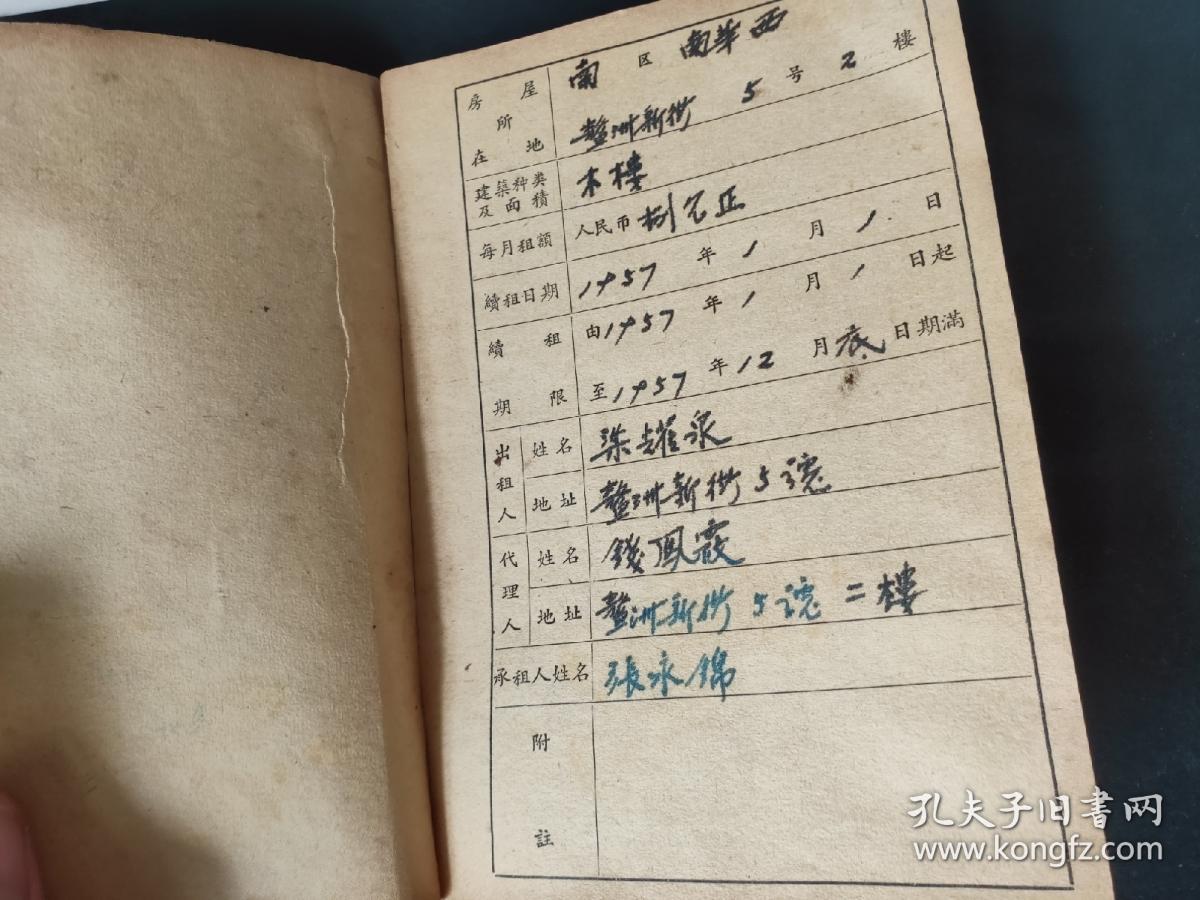 房屋所在地 南 区 南華西
鰲洲新街 5 号 2 樓
建築种类及面積 木樓
每月租額 人民币 捌元正
續租日期 1957 年 1 月 1 日
續租期限 由1957 年 1 月 1 日起
至1957 年 12 月底日期滿
出租人 姓名 梁耀泉
地址 鰲洲新街5號
代理人 姓名 錢鳳霞
地址 鰲洲新街5號二樓
承租人姓名 張永錦
附註
孔夫子旧书网
www.kongfz.com